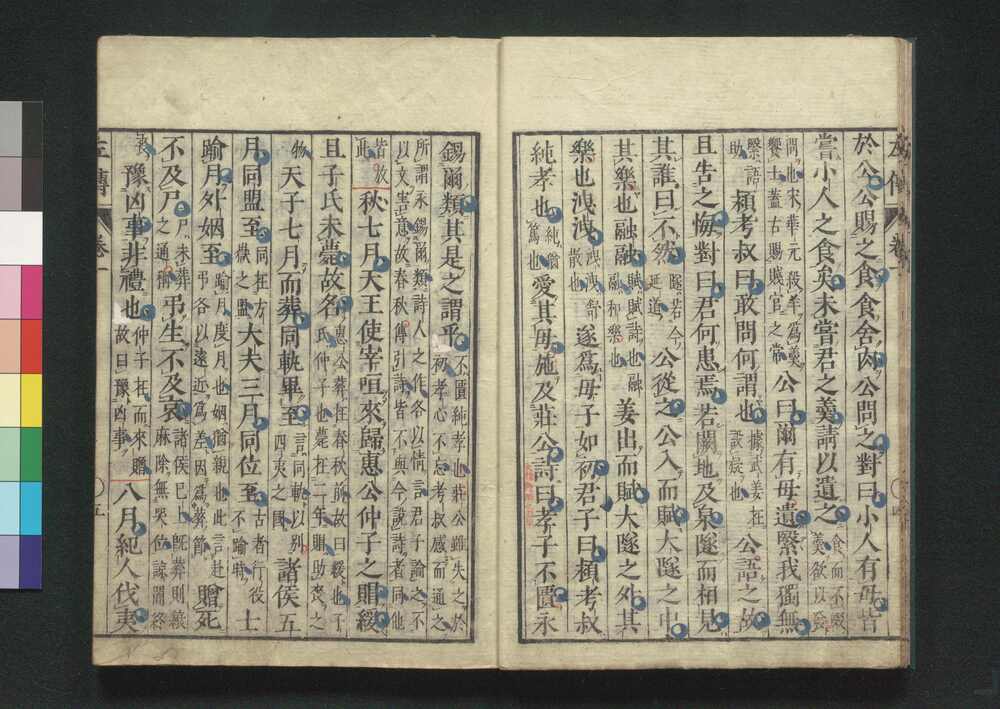 於公公賜之食食舍肉公問之對曰小人有母皆
嘗小人之食矣未嘗君之羹請以遺之食而不啜羹欲以發
問也宋華元殺羊爲羹饗士蓋古賜賤官之常公曰爾有母遺繄我獨無
繄語助潁考叔曰敢問何謂也據武姜在設疑也公語之故
且告之悔對曰君何患焉若闕地及泉隧而相見
其誰曰不然隧若今延道公從之公入而賦大隧之中
其樂也融融賦賦詩也融融和樂也姜出而賦大隧之外其
樂也洩洩洩洩舒散也遂爲母子如初君子曰潁考叔
純孝也純猶篤也愛其母施及莊公詩曰孝子不匱永
錫爾類其是之謂乎不匱純孝也莊公雖失之於初孝心不忘考叔感而通之
所謂永錫爾類詩人之作各以情言君子論之不以文害意故春秋傳引詩皆不與今說詩者同他
皆放此秋七月天王使宰咺來歸惠公仲子之賵緩
且子氏未薨故名惠公葬在春秋前故曰緩也子氏仲子也薨在二年賵助喪之
物天子七月而葬同軌畢至言同軌以別四夷之國諸侯五
月同盟至同在方嶽之盟大夫三月同位至古者行役不踰時士
踰月外姻至踰月度月也姻猶親也此言赴弔各以遠近爲差因爲葬節贈死
不及尸尸未葬之通稱弔生不及哀諸侯已上既葬則縗麻除無哭位諒闇終
喪豫凶事非禮也仲子在而來贈故曰豫凶事八月紀人伐夷
左傳
卷一
五